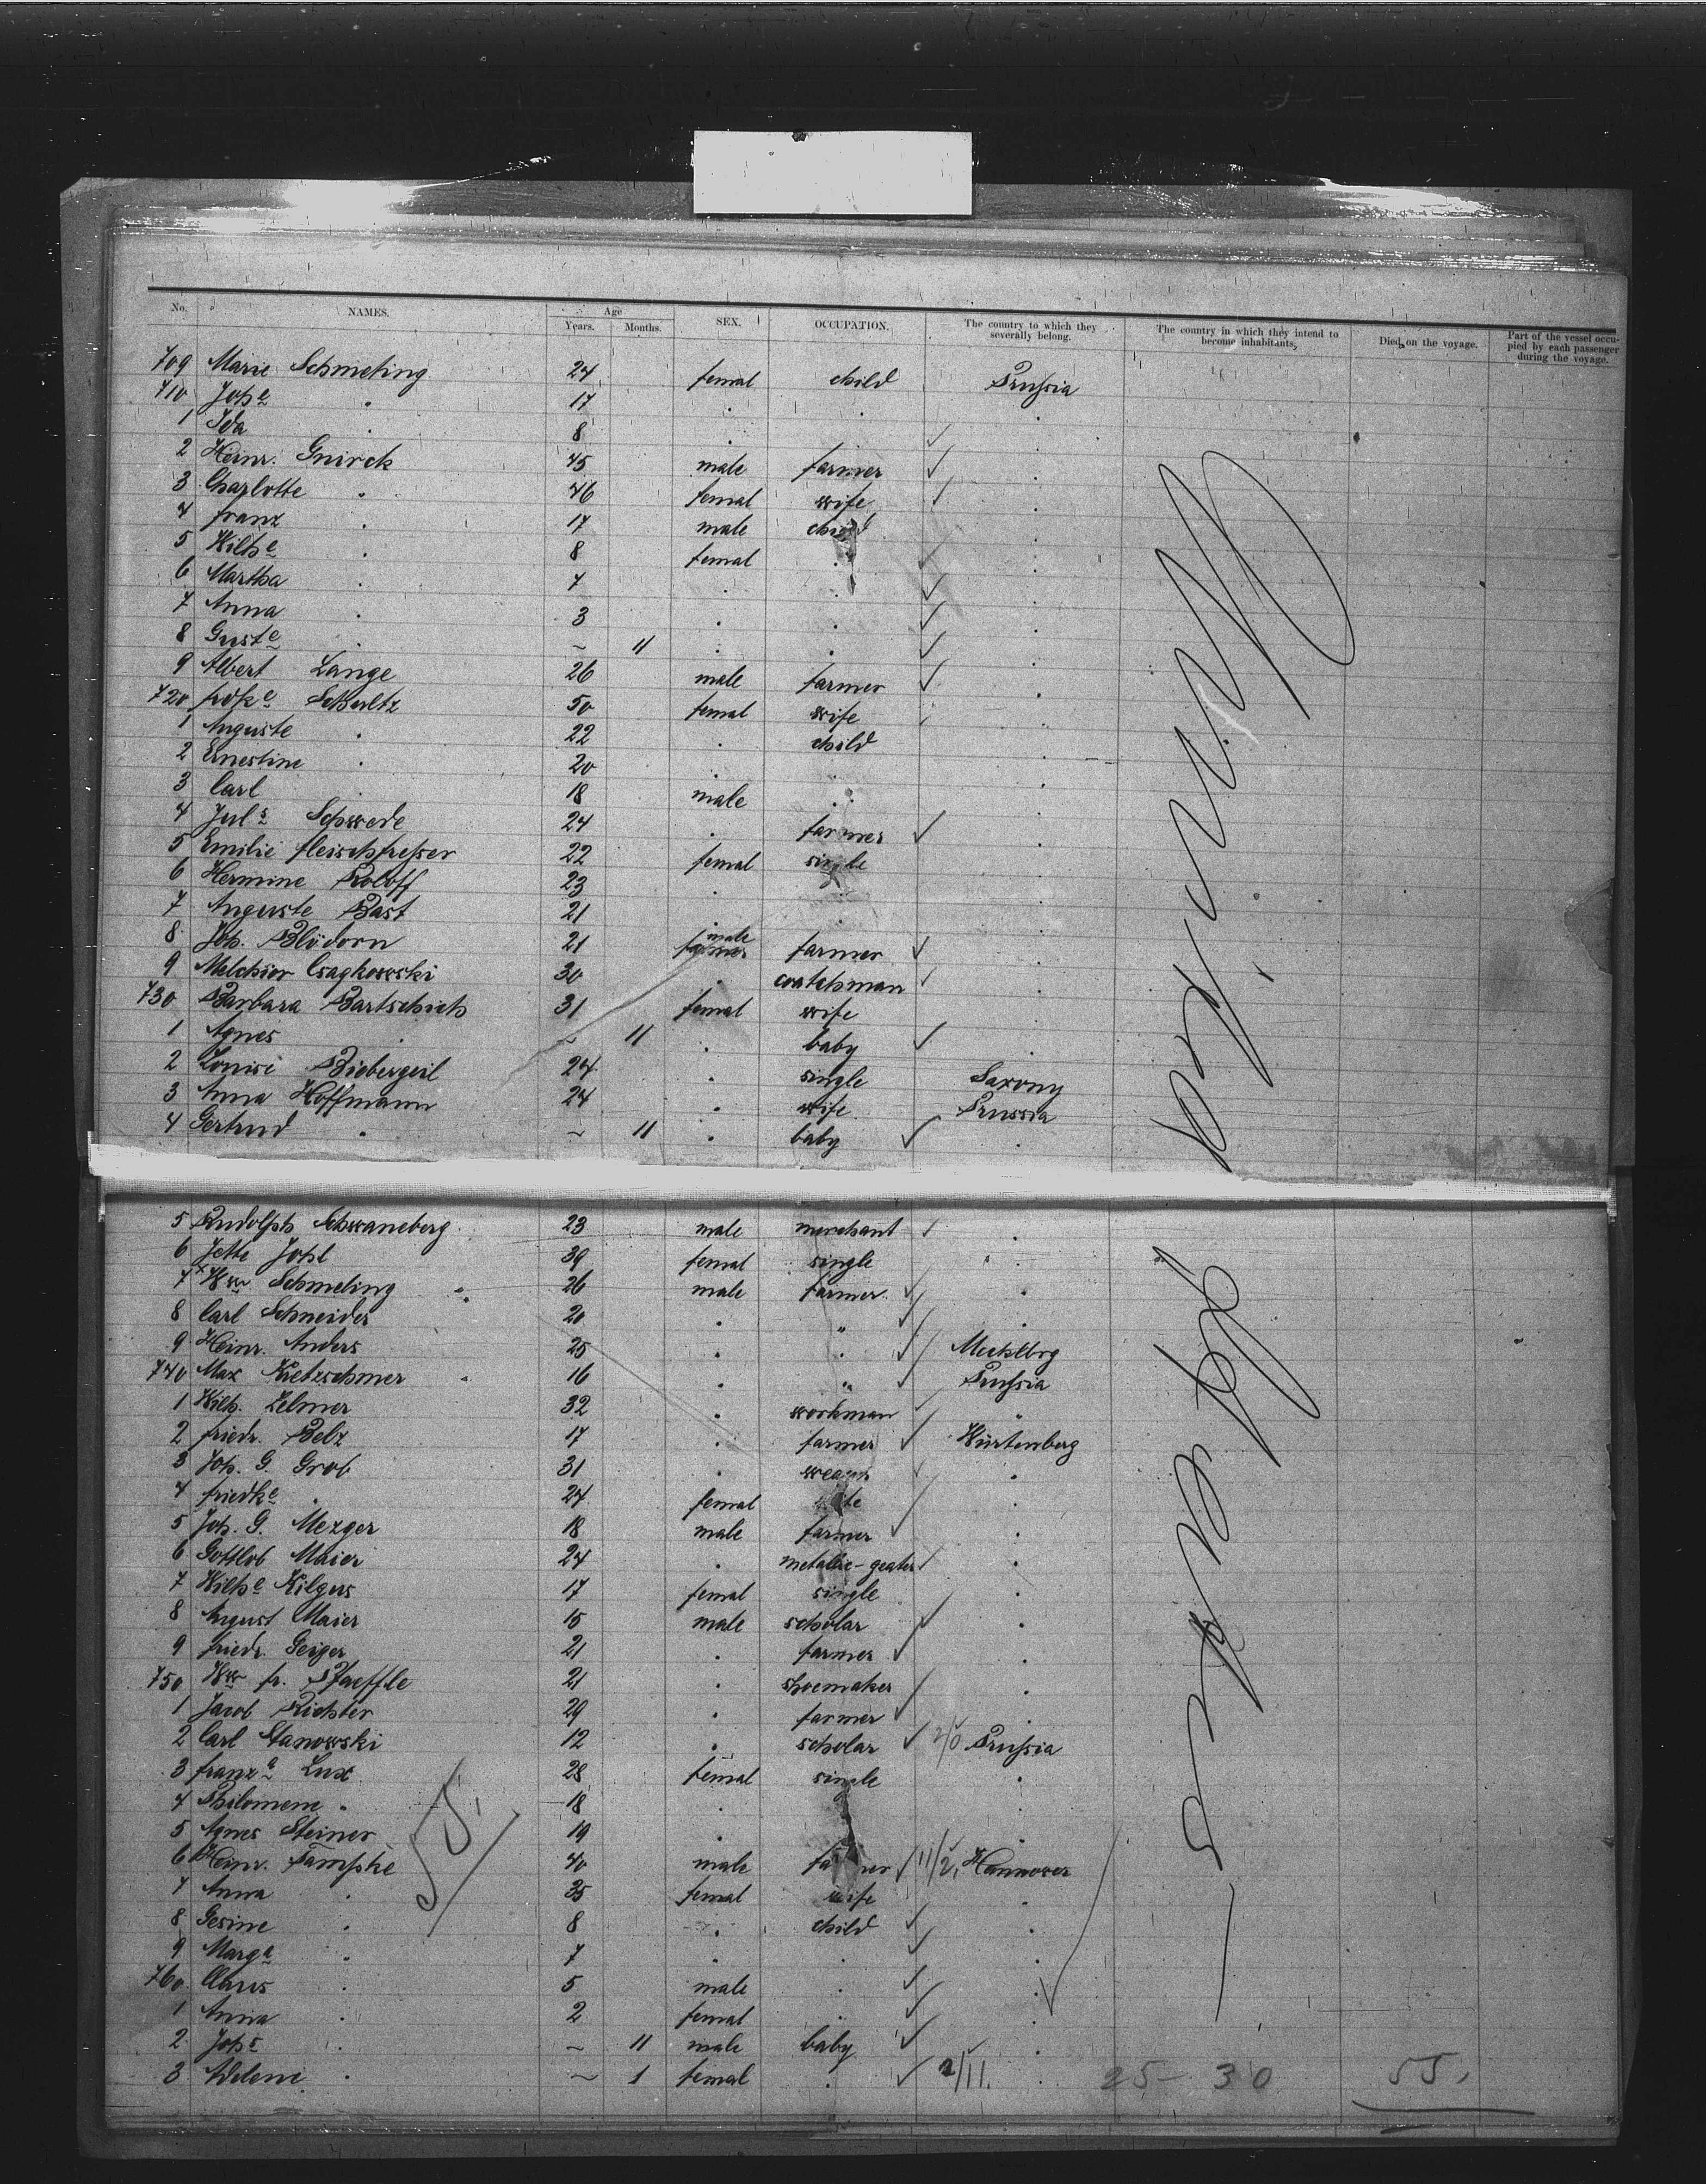 No. NAMES. Age Years. Months. SEX. OCCUPATION. The country to which they severally belong. The country in which they intend to become inhabitants. Died on the voyage. Part of the vessel occupied by each passenger during the voyage.
709 Marie Schmeling 24 femal child Prussia
710 Johe " 17 " " "
1 Ida " 8 " " "
2 Heinr. Gnirck 45 male farmer "
3 Charlotte " 46 femal wife "
4 Franz " 17 male child "
5 Wilhe " 8 femal " "
6 Martha " 7 " " "
7 Anna " 3 " " "
8 Guste " ~ 11 " " "
9 Albert Lange 26 male farmer "
720 Frdke Schultz 50 femal wife "
1 Auguste " 22 " child "
2 Ernestine " 20 " " "
3 Carl " 18 male " "
4 Juls Schwede 24 " farmer "
5 Emilie Fleischfresser 22 femal single "
6 Hermine Roloff 23 " " "
7 Auguste Bast 21 " " "
8 Joh. Blödorn 21 male farmer "
9 Melchior Csagkowski 30 " coatchman "
730 Barbara Bartschich 31 femal wife "
1 Agnes " ~ 11 " baby "
2 Louise Biebergeil 24 " single Saxony
3 Anna Hoffmann 24 " wife Prussia
4 Gertrud " ~ 11 " baby "
5 Rudolph Schwaneberg 23 male merchant "
6 Jette Johl 39 femal single "
7 Wm Schmeling 26 male farmer "
8 Carl Schneider 20 " " "
9 Heinr. Anders 25 " " Mecklbrg
740 Max Kretzschmer 16 " " Prussia
1 Wilh. Zelmer 32 " workman "
2 Friedr. Belz 17 " farmer Würtenberg
3 Joh. G. Grob 31 " "
4 Friedke " 24 femal wife "
5 Joh. G. Mezger 18 male farmer "
6 Gottlob Maier 24 " metallic-geater "
7 Wilhe Kilgus 17 femal single "
8 August Maier 15 male scholar "
9 Friedr. Geiger 21 " farmer "
750 Wm Fr. Staeffle 21 " shoemaker "
1 Jacob Richter 29 " farmer "
2 Carl Stanowski 12 " scholar 2/0 Prussia
3 Franza Lux 28 femal single "
4 Philomene " 18 " "
5 Agnes Steiner 19 " "
6 Heinr. Pampske 40 male farmer 11/2, Hannover
7 Anna " 35 femal wife "
8 Gesine " 8 " child "
9 Marga " 7 " " "
760 Claus " 5 male " "
1 Anna " 2 femal " "
2 Johs " ~ 11 male baby "
3 Adelene " ~ 1 femal " 2/11.
25- 30 55.
55.